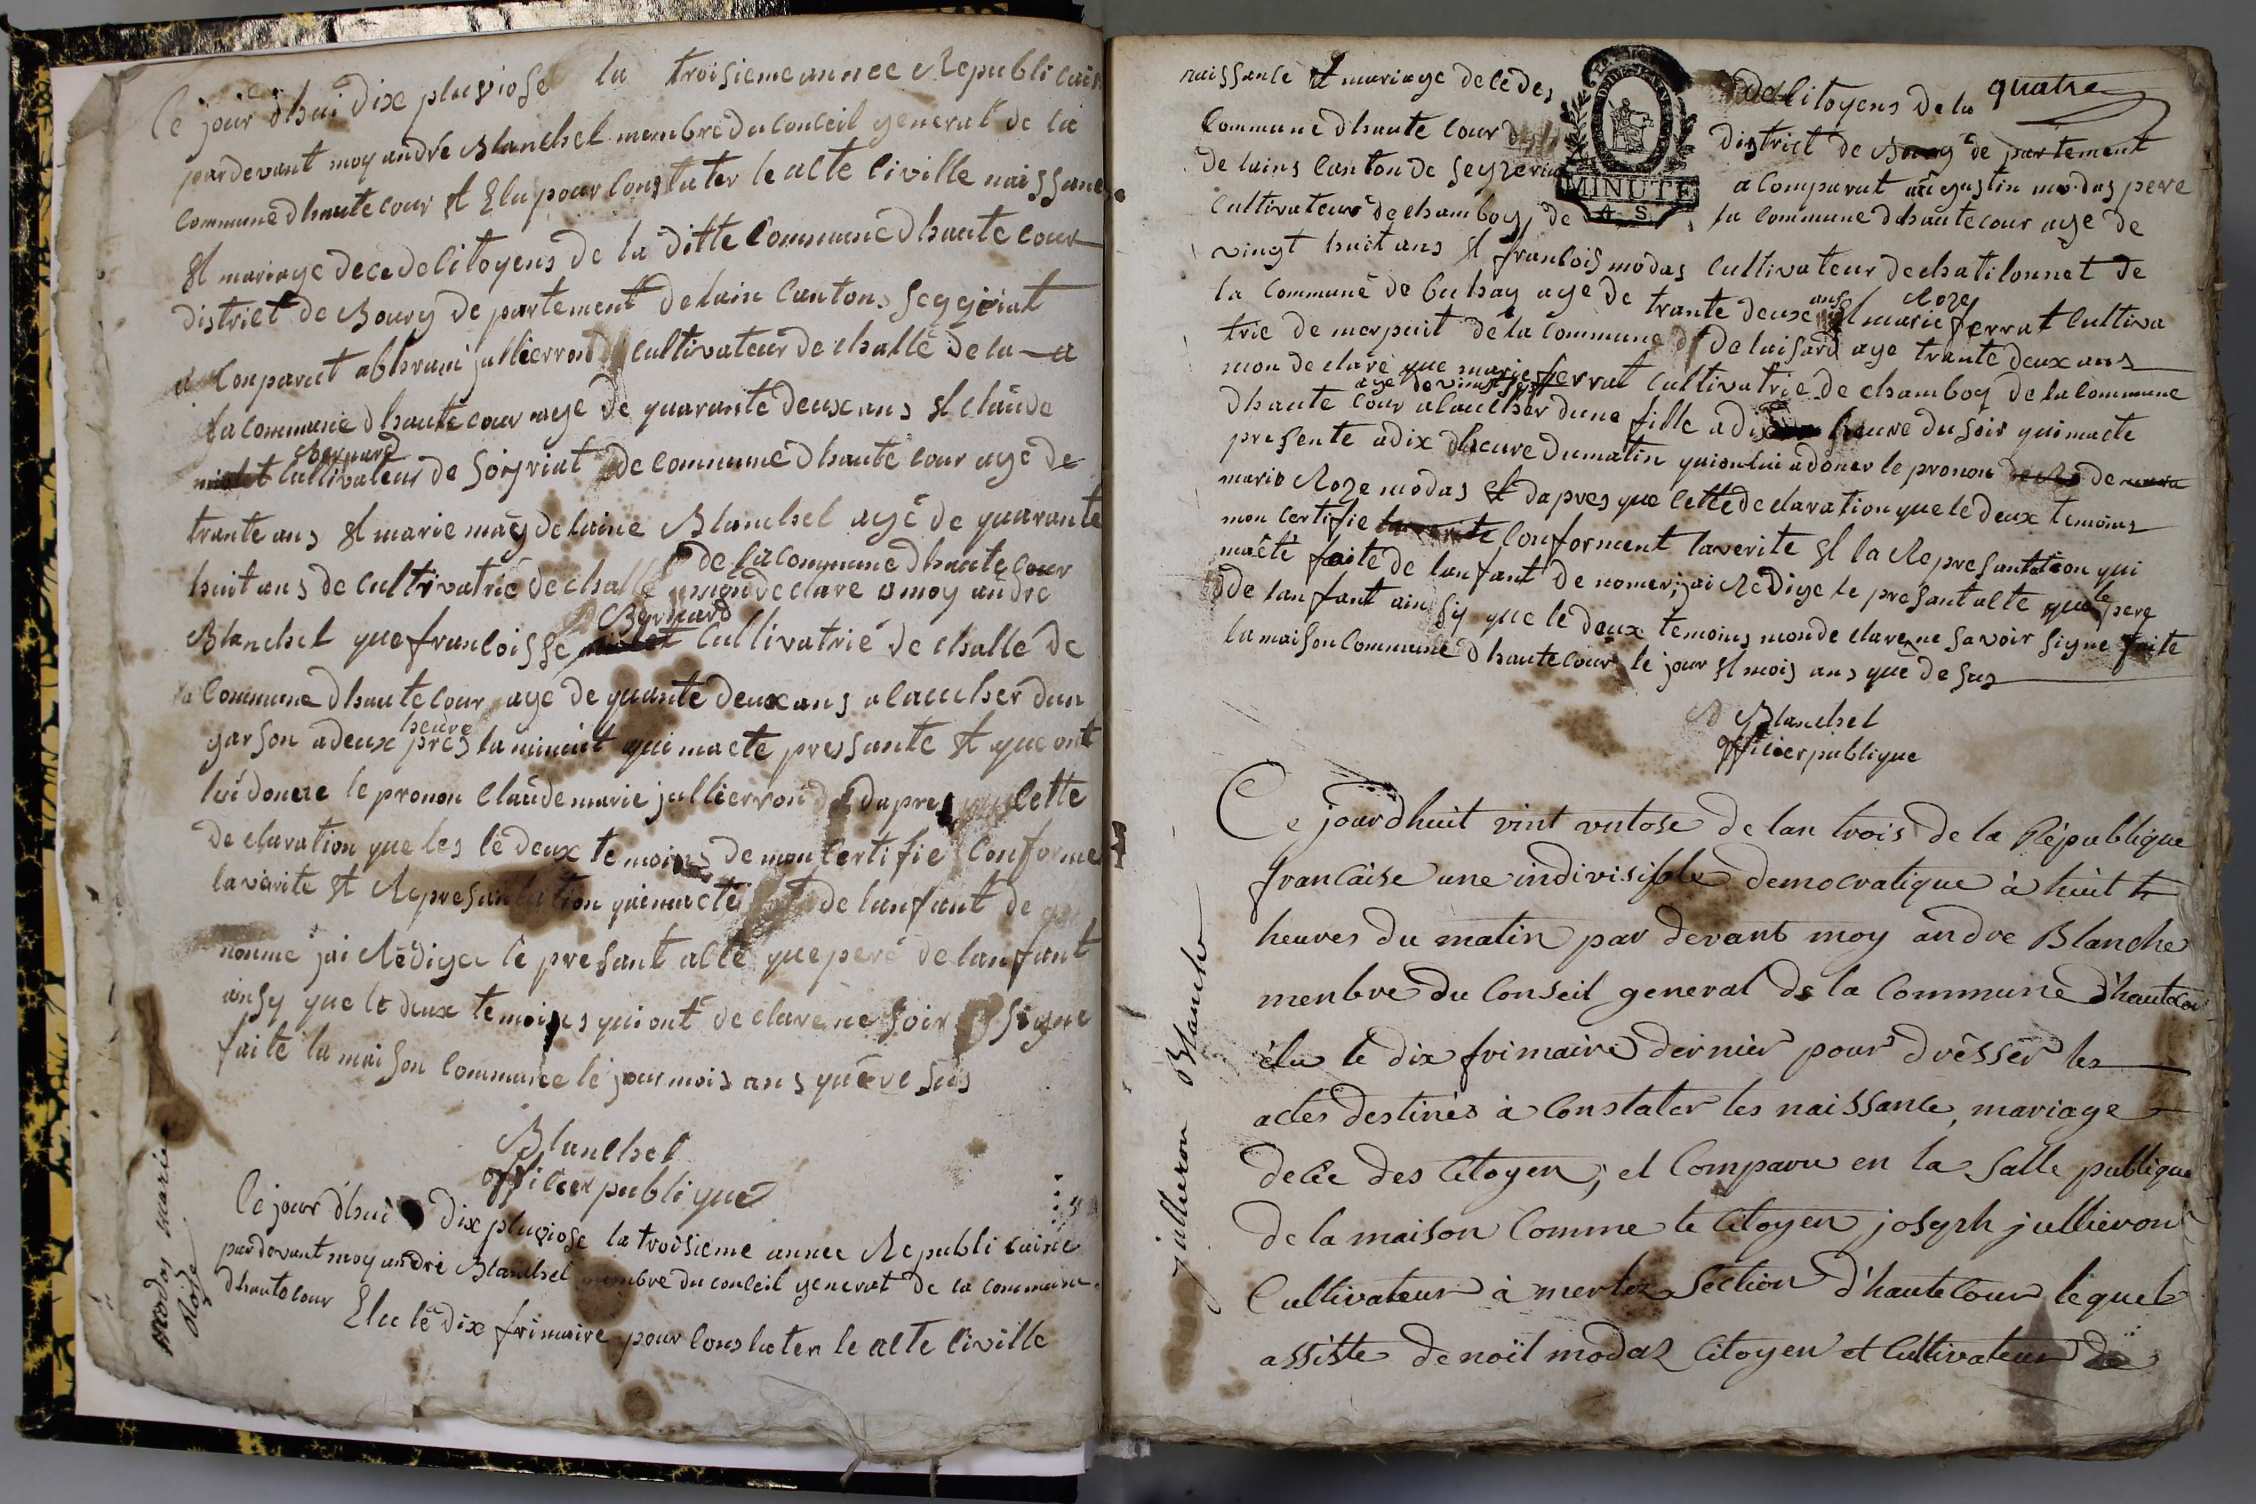 Ce jour dhui dix pluviose la troisieme annee Republicain
pardevant moy andré Blanchet membre du conceil general de la
commune dhaute cour et Elu pour constater le acte civille naissance
et mariage decede citoyens de la ditte commune dhaute cour
district de Bourg departement delain cantons segeriat
a comparut abbraim jullierron cultivateur de challe de la
la commune dhaute cour age de quarante deux ans et claude
Bernard
cultivateur de soirriat de commune dhaute cour age de
trante ans et marie magdelaine Blanchet agé de quarante
de la commune dhaute cour
huit ans de cultivatrie de challe mon declare a moy andré
Bernard
Blanchet que francoisse cultivatrie de challe de
la commune dhaute cour age de quante deux ans a laucher dun
heure
garson adeux pres la minuit qui macte pressante et que ont
lui donere le pronon claude marie jullierron dapres cette
declaration que les le deux temoins demon certifie conforme
laverite et Representation qui macte de lanfant de
nomme jai Rédiger le presant acte que pere de lanfant
ainsy que le deux temoins qui ont declare ne soir signe
faite la maison commune le jour mois ans que de sus
Blanchet
officier publique
Ce jour dhui dix pluviose la troisieme annee Republicaine
pardevant moy andré Blanchet membre du conceil general de la commune
dhaute cour Elu le dix frimaire pour constater le acte civille
modas marie
Roze
quatre
naissance et mariage decedes des citoyens de la
commune dhaute cour district de Bourg departement
de lains canton de seyzeria a comparut augustin modas pere
MINUTE
4 S
cultivateur de chamboy de la commune dhaute cour age de
vingt huit ans et francois modas cultivateur de chatilonnet de
la commune de buhay age de trante deux ans et marie Roze ferrat cultiva
trie de merpuit de la commune de luisard age trante deux ans
mon declare que marie ferrat cultivatrie de chamboy de la commune
age de vingt sept
dhaute cour alaucher dune fille a dix heure du soir qui macte
presente adix dheure dumatin quion lui adoner le pronon de
marie Roze modas et dapres que cette declaration que le deux temoins
mon certifie conforment laverite et la Representation qui
macté faite de lanfant de nomer; jai Redige le presant acte que le pere
de lanfant ainsy que le deux temoins mon declare ne savoir signe faite
la maison commune dhaute cour le jour et mois ans que de sus
A Blanchet
officier publique
jullieron Blanche
Ce jourdhuit vint vntose de lan trois de la République
francaise une indivisible democratique à huit h
heures du matin par devant moy andre Blanche
menbre du Conseil general de la Commune d'hautecou
élu le dix frimaire dernier pour drésser les
actes destinés à Constater les naissance, mariage
decée des Citoyen; et Comparu en la Salle publique
de la maison Comme le Citoyen joseph jullieron
Cultivateur à merloz Section d'hautecour lequel
assiste de noïl modaz Citoyen et Cultivateur de